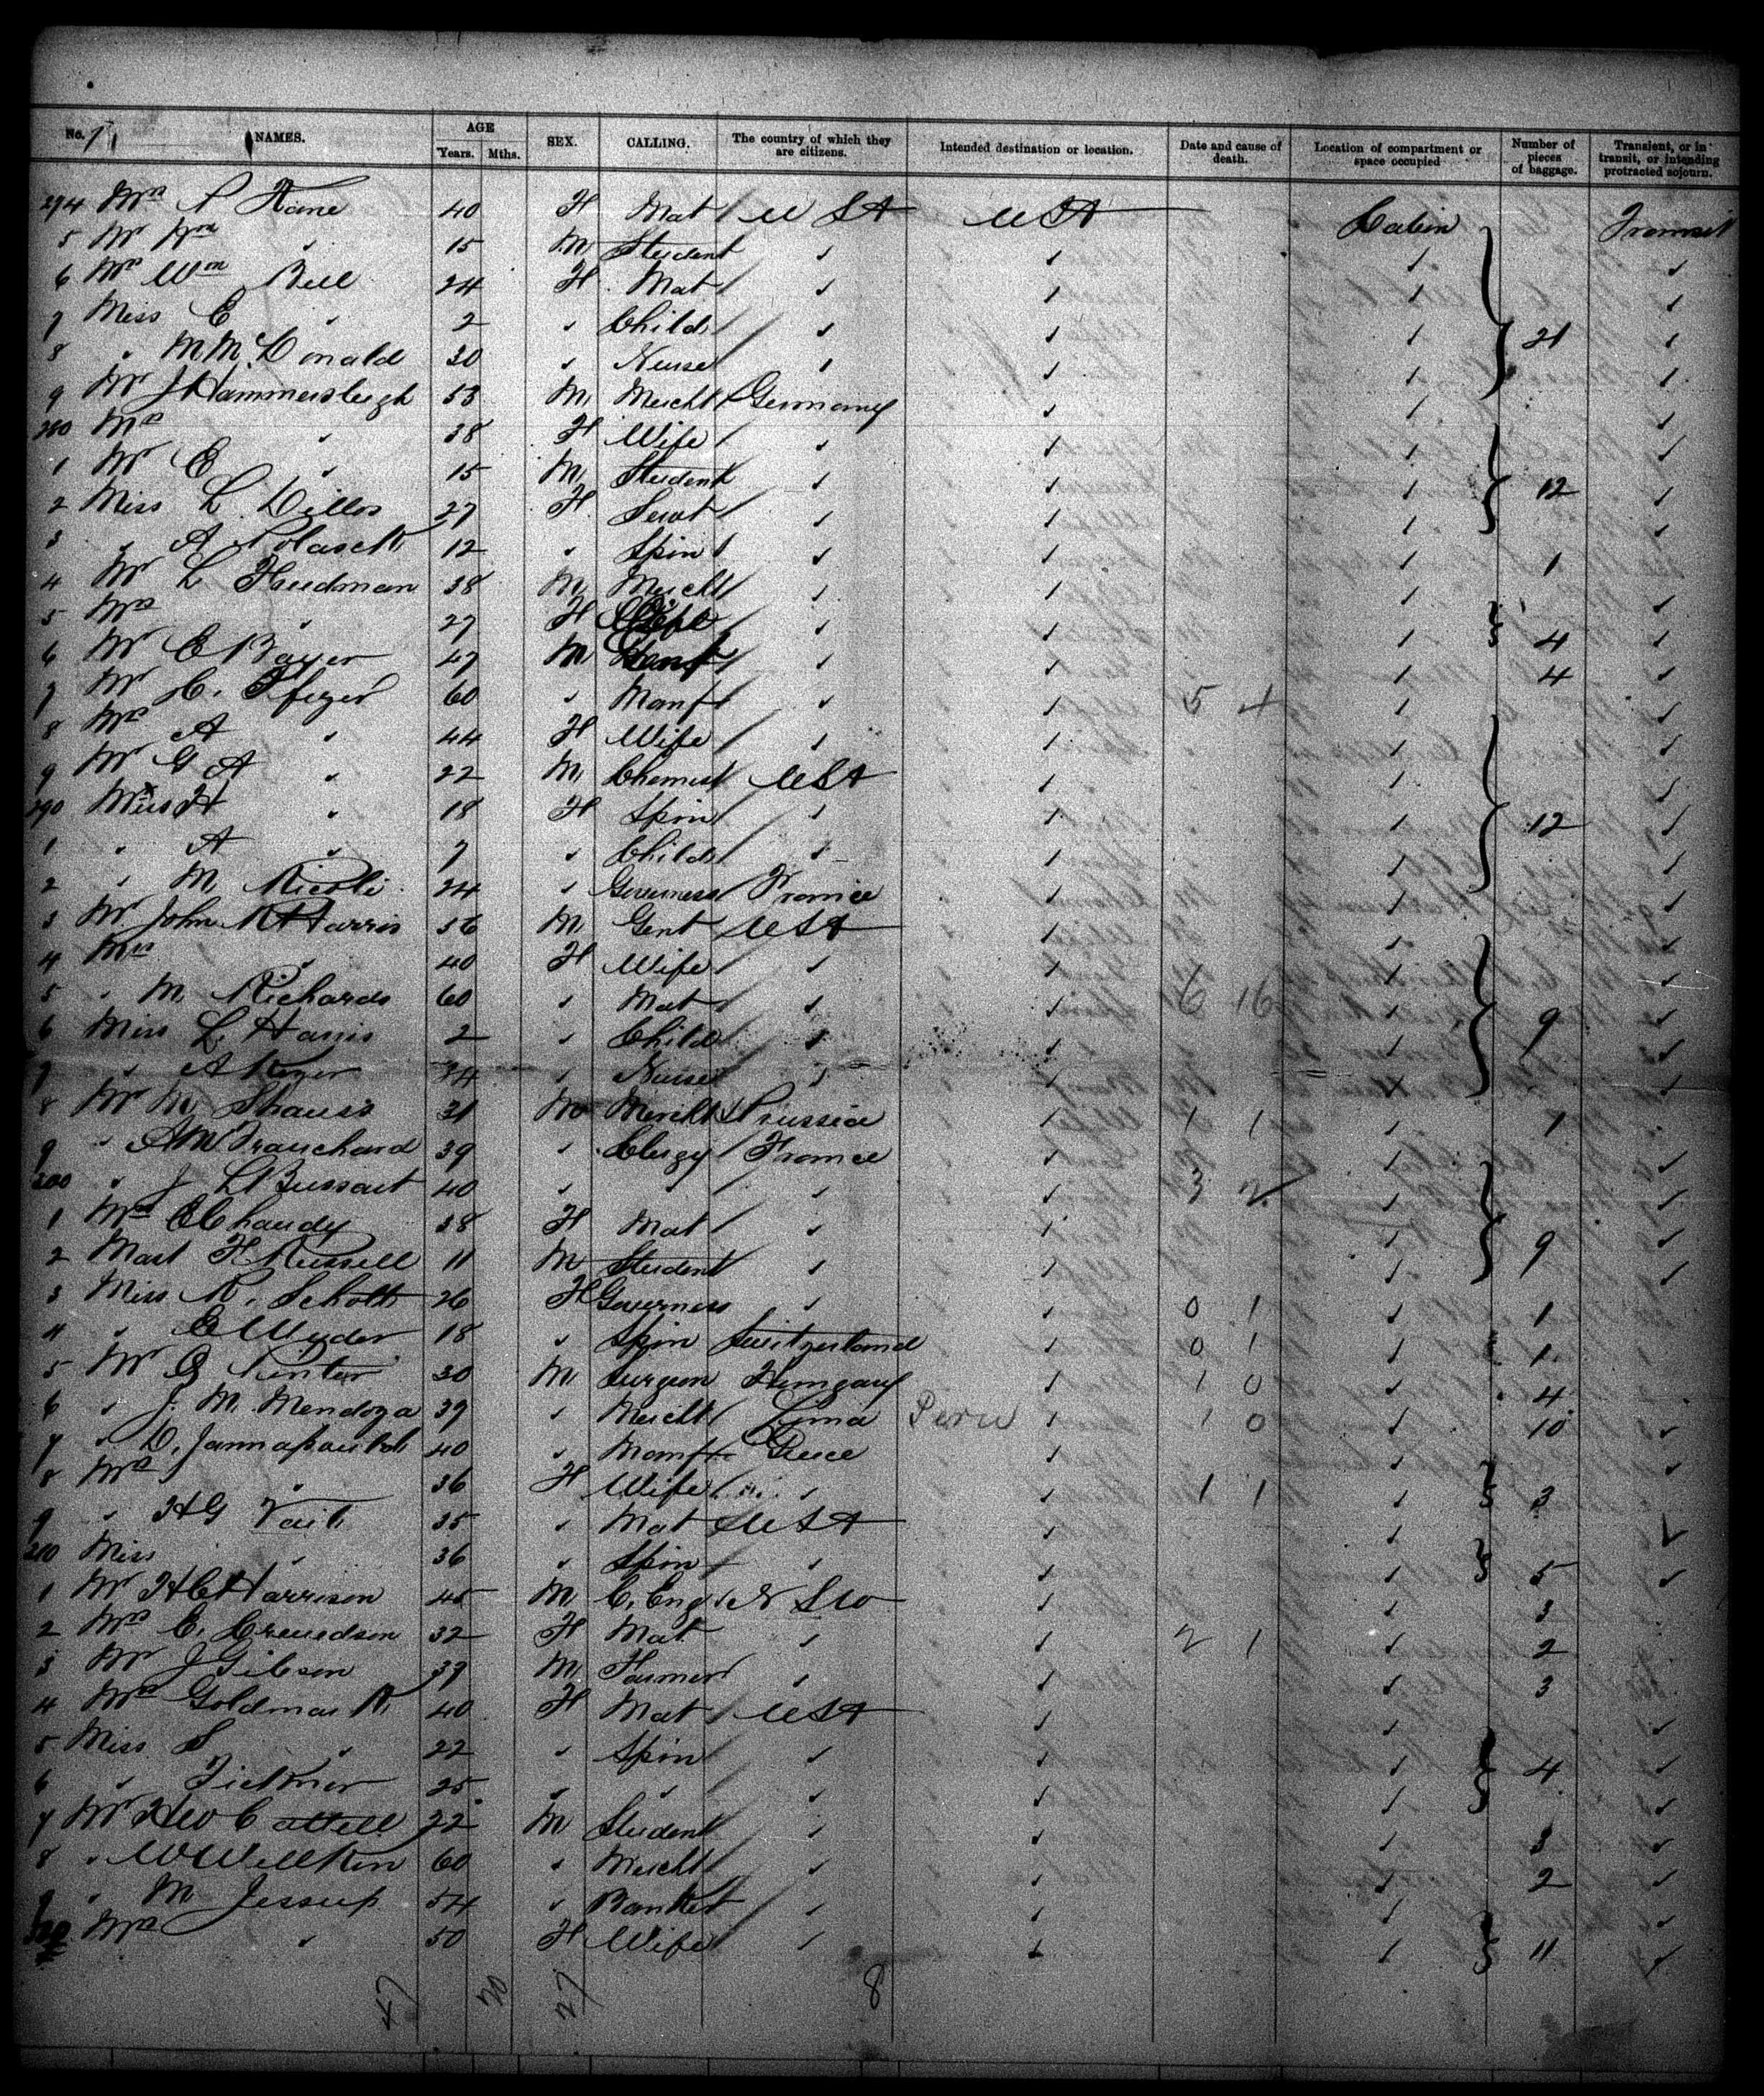 No. NAMES. AGE Years. Mths. SEX. CALLING. The country of which they are citizens. Intended destination or location. Date and cause of death. Location of compartment or space occupied Number of pieces of baggage. Transient, or in transit, or intending protracted sojourn.
Mrs Kane 40 F Mat U S A U S A Cabin Transit
5 Mr Wm " 15 M Student
6 Mrs Wm Bell 24 F Mat
7 Miss E " 2 " Child
8 " M McDonald 30 " Nurse 21
9 Mr J Hammersleigh 53 M Mercht Germany
Mrs " 38 F Wife
1 Mr E " 15 M Student
2 Miss L. 27 F Servt 12
3 " A Polasck 12 " Spin 1
4 Mr L Friedman 38 M Mercht
5 Mrs " 27 F Wife 4
6 Mr E Bayer 47 M 4
7 Mr C. Pfizer 60 " Manf 5 4
8 Mrs A " 44 F Wife
9 Mr G A " 22 M Chemist U S A
Miss H " 18 F Spin 12
1 " A " 7 " Child
2 " M 24 " Governess France
3 Mr John R Harris 56 M Gent U S A
4 Mrs " 40 F Wife
5 " M Richards 60 " Mat 6 16
6 Miss L Harris 2 " Child 9
7 " A 34 " Nurse
8 Mr M Strauss 31 M Mercht Prussia 1 1 1
9 " A M Trauchard 39 " Clergy France
" J L Bussart 40 " " " 3 2
1 Mrs E Chaudy 38 F Mat "
2 Mast F Russell 11 M Student " 9
3 Miss R. Scholl 26 F Governess " 0 1 1
4 " E Wyder 18 " Spin Switzerland 0 1 1
5 Mr G 30 M Surgeon Hungary 1 0 4
6 " J. M. Mendoza 39 " Mercht Lima Peru 1 0 10
7 " D. 40 " Manf Greece
8 Mrs " 36 F Wife " 1 1 3
9 " H G Vail 35 " Mat U S A
Miss " 36 " Spin " 5
1 Mr H C Harrison 45 M C. Eng N S W 3
2 Mrs C. 32 F Mat " 2 1 2
3 Mr J Gibson 39 M Farmer " 3
4 Mrs Goldmark 40 F Mat U S A
5 Miss S " 22 " Spin " 4
6 " Tiekner 25 " "
7 Mr Hw Cattell 22 M Student " 3
8 " W Wellken 60 " Mercht " 2
9 " M Jessup 54 " Banker "
Mrs " 50 F Wife " 11
47 20 27 8